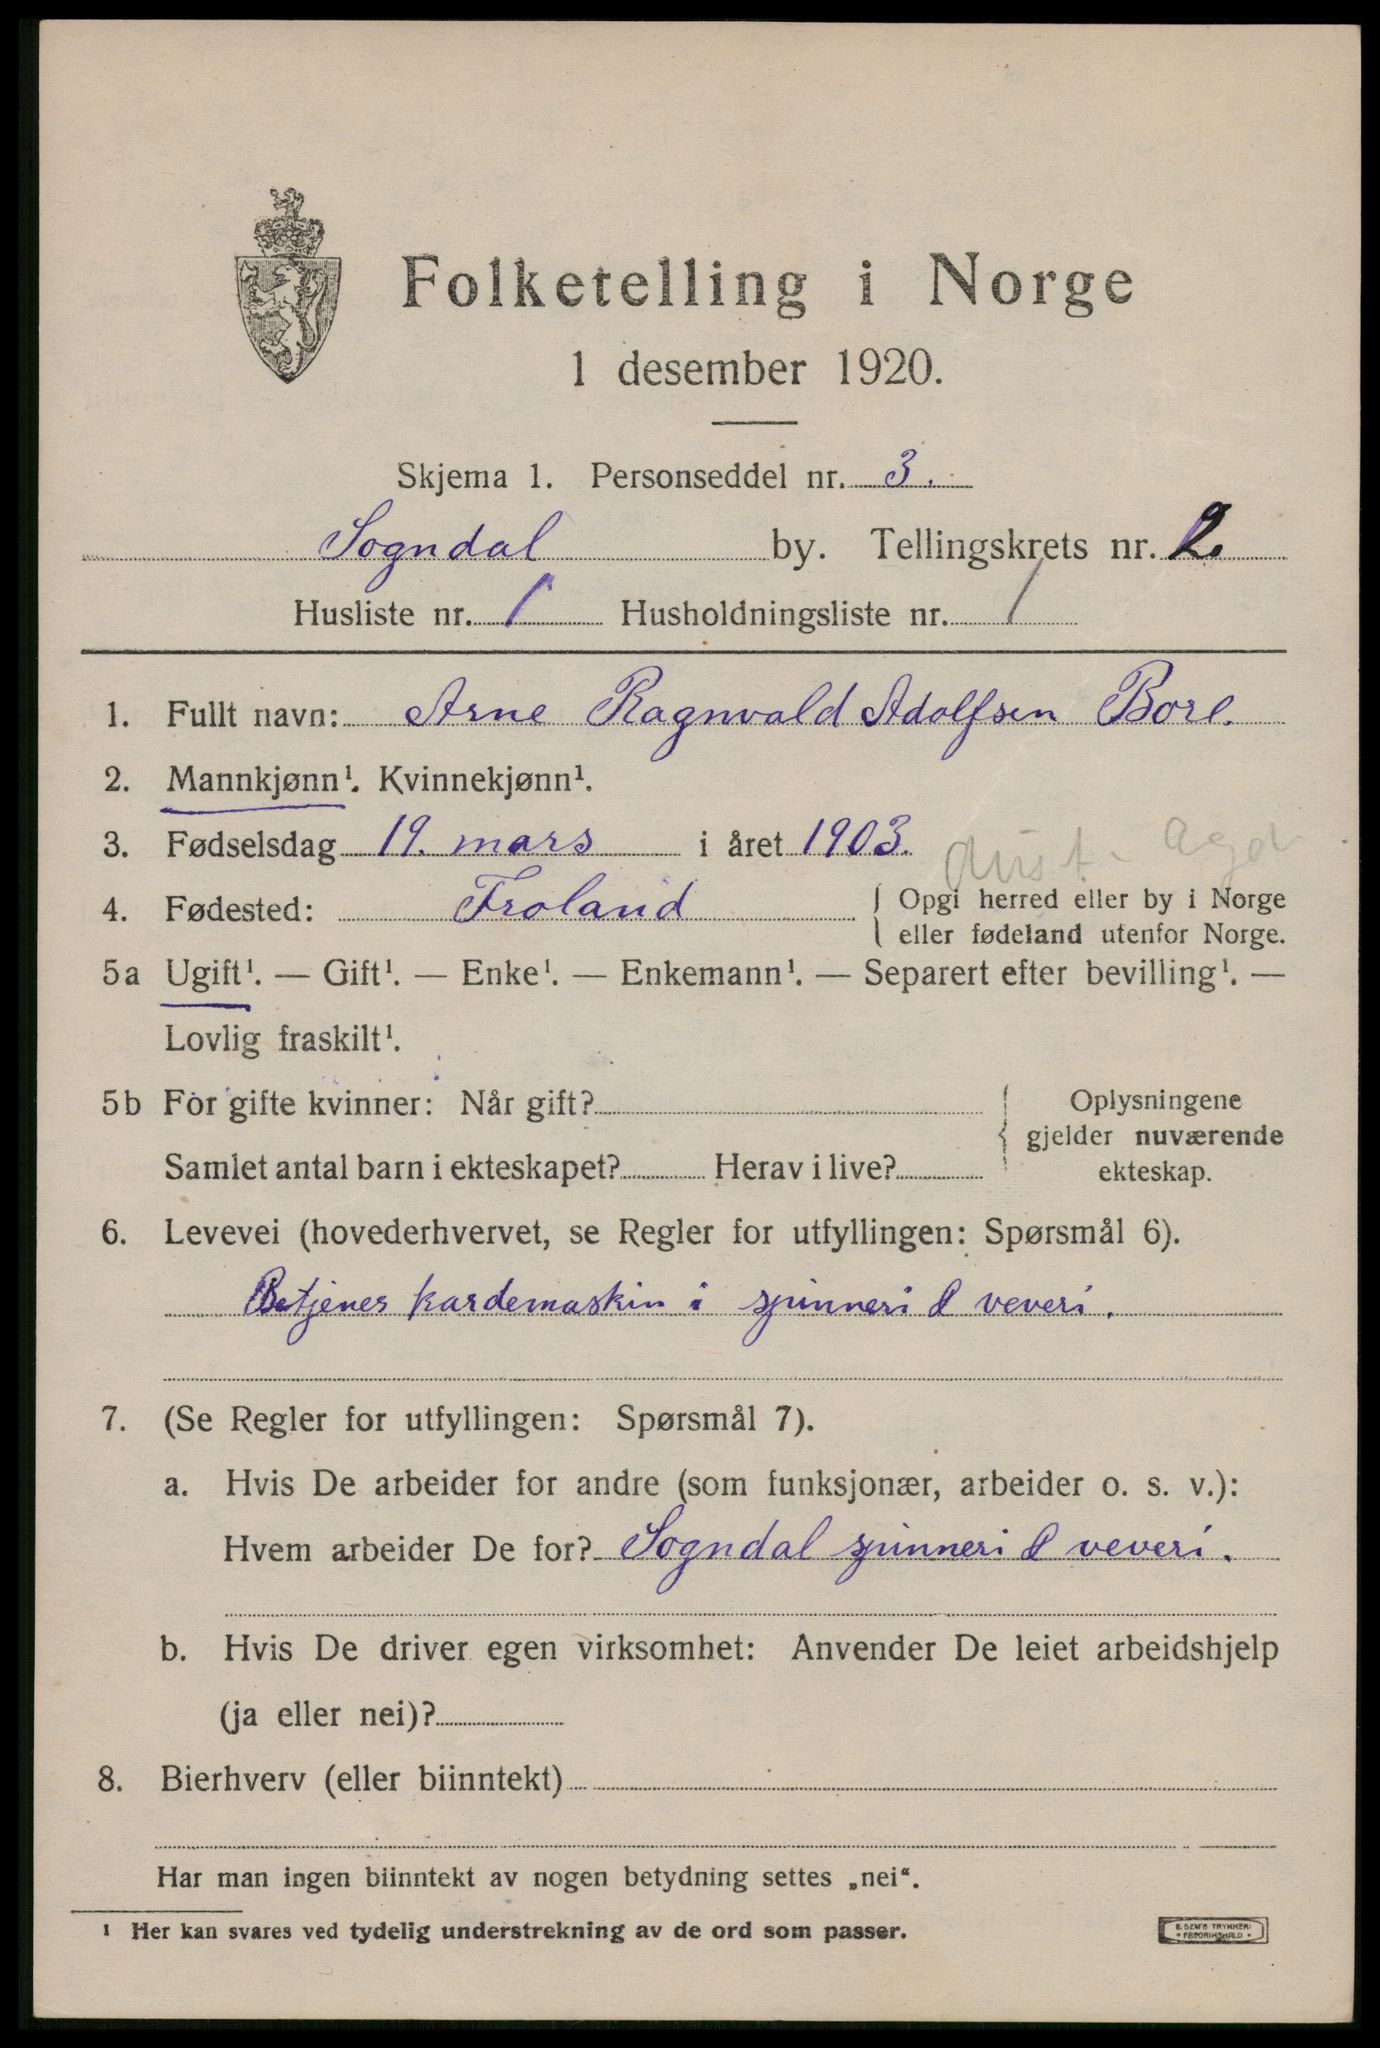 Folketelling i Norge
1 desember 1920.
Skjema 1. Personseddel nr. 3.
Sogndal by. Tellingskrets nr. 2.
Husliste nr. 1 Husholdningsliste nr. 1
1. Fullt navn: Arne Ragnvald Adolfsen Bore.
2. Mannkjønn¹. Kvinnekjønn¹.
3. Fødselsdag 19. mars i året 1903.
Aust-Agder
4. Fødested: Froland { Opgi herred eller by i Norge
eller fødeland utenfor Norge.
5a Ugift¹. — Gift¹. — Enke¹. — Enkemann¹. — Separert efter bevilling¹. —
Lovlig fraskilt¹.
5b For gifte kvinner: Når gift? { Oplysningene
gjelder nuværende
Samlet antal barn i ekteskapet? Herav i live? ekteskap.
6. Levevei (hovederhvervet, se Regler for utfyllingen: Spørsmål 6).
Betjener kardemaskin i spinneri & veveri.
7. (Se Regler for utfyllingen: Spørsmål 7).
a. Hvis De arbeider for andre (som funksjonær, arbeider o. s. v.):
Hvem arbeider De for? Sogndal spinneri & veveri.
b. Hvis De driver egen virksomhet: Anvender De leiet arbeidshjelp
(ja eller nei)?
8. Bierhverv (eller biinntekt)
Har man ingen biinntekt av nogen betydning settes „nei“.
¹ Her kan svares ved tydelig understrekning av de ord som passer.
E. SEM'S TRYKKERI
• FREDRIKSHALD •